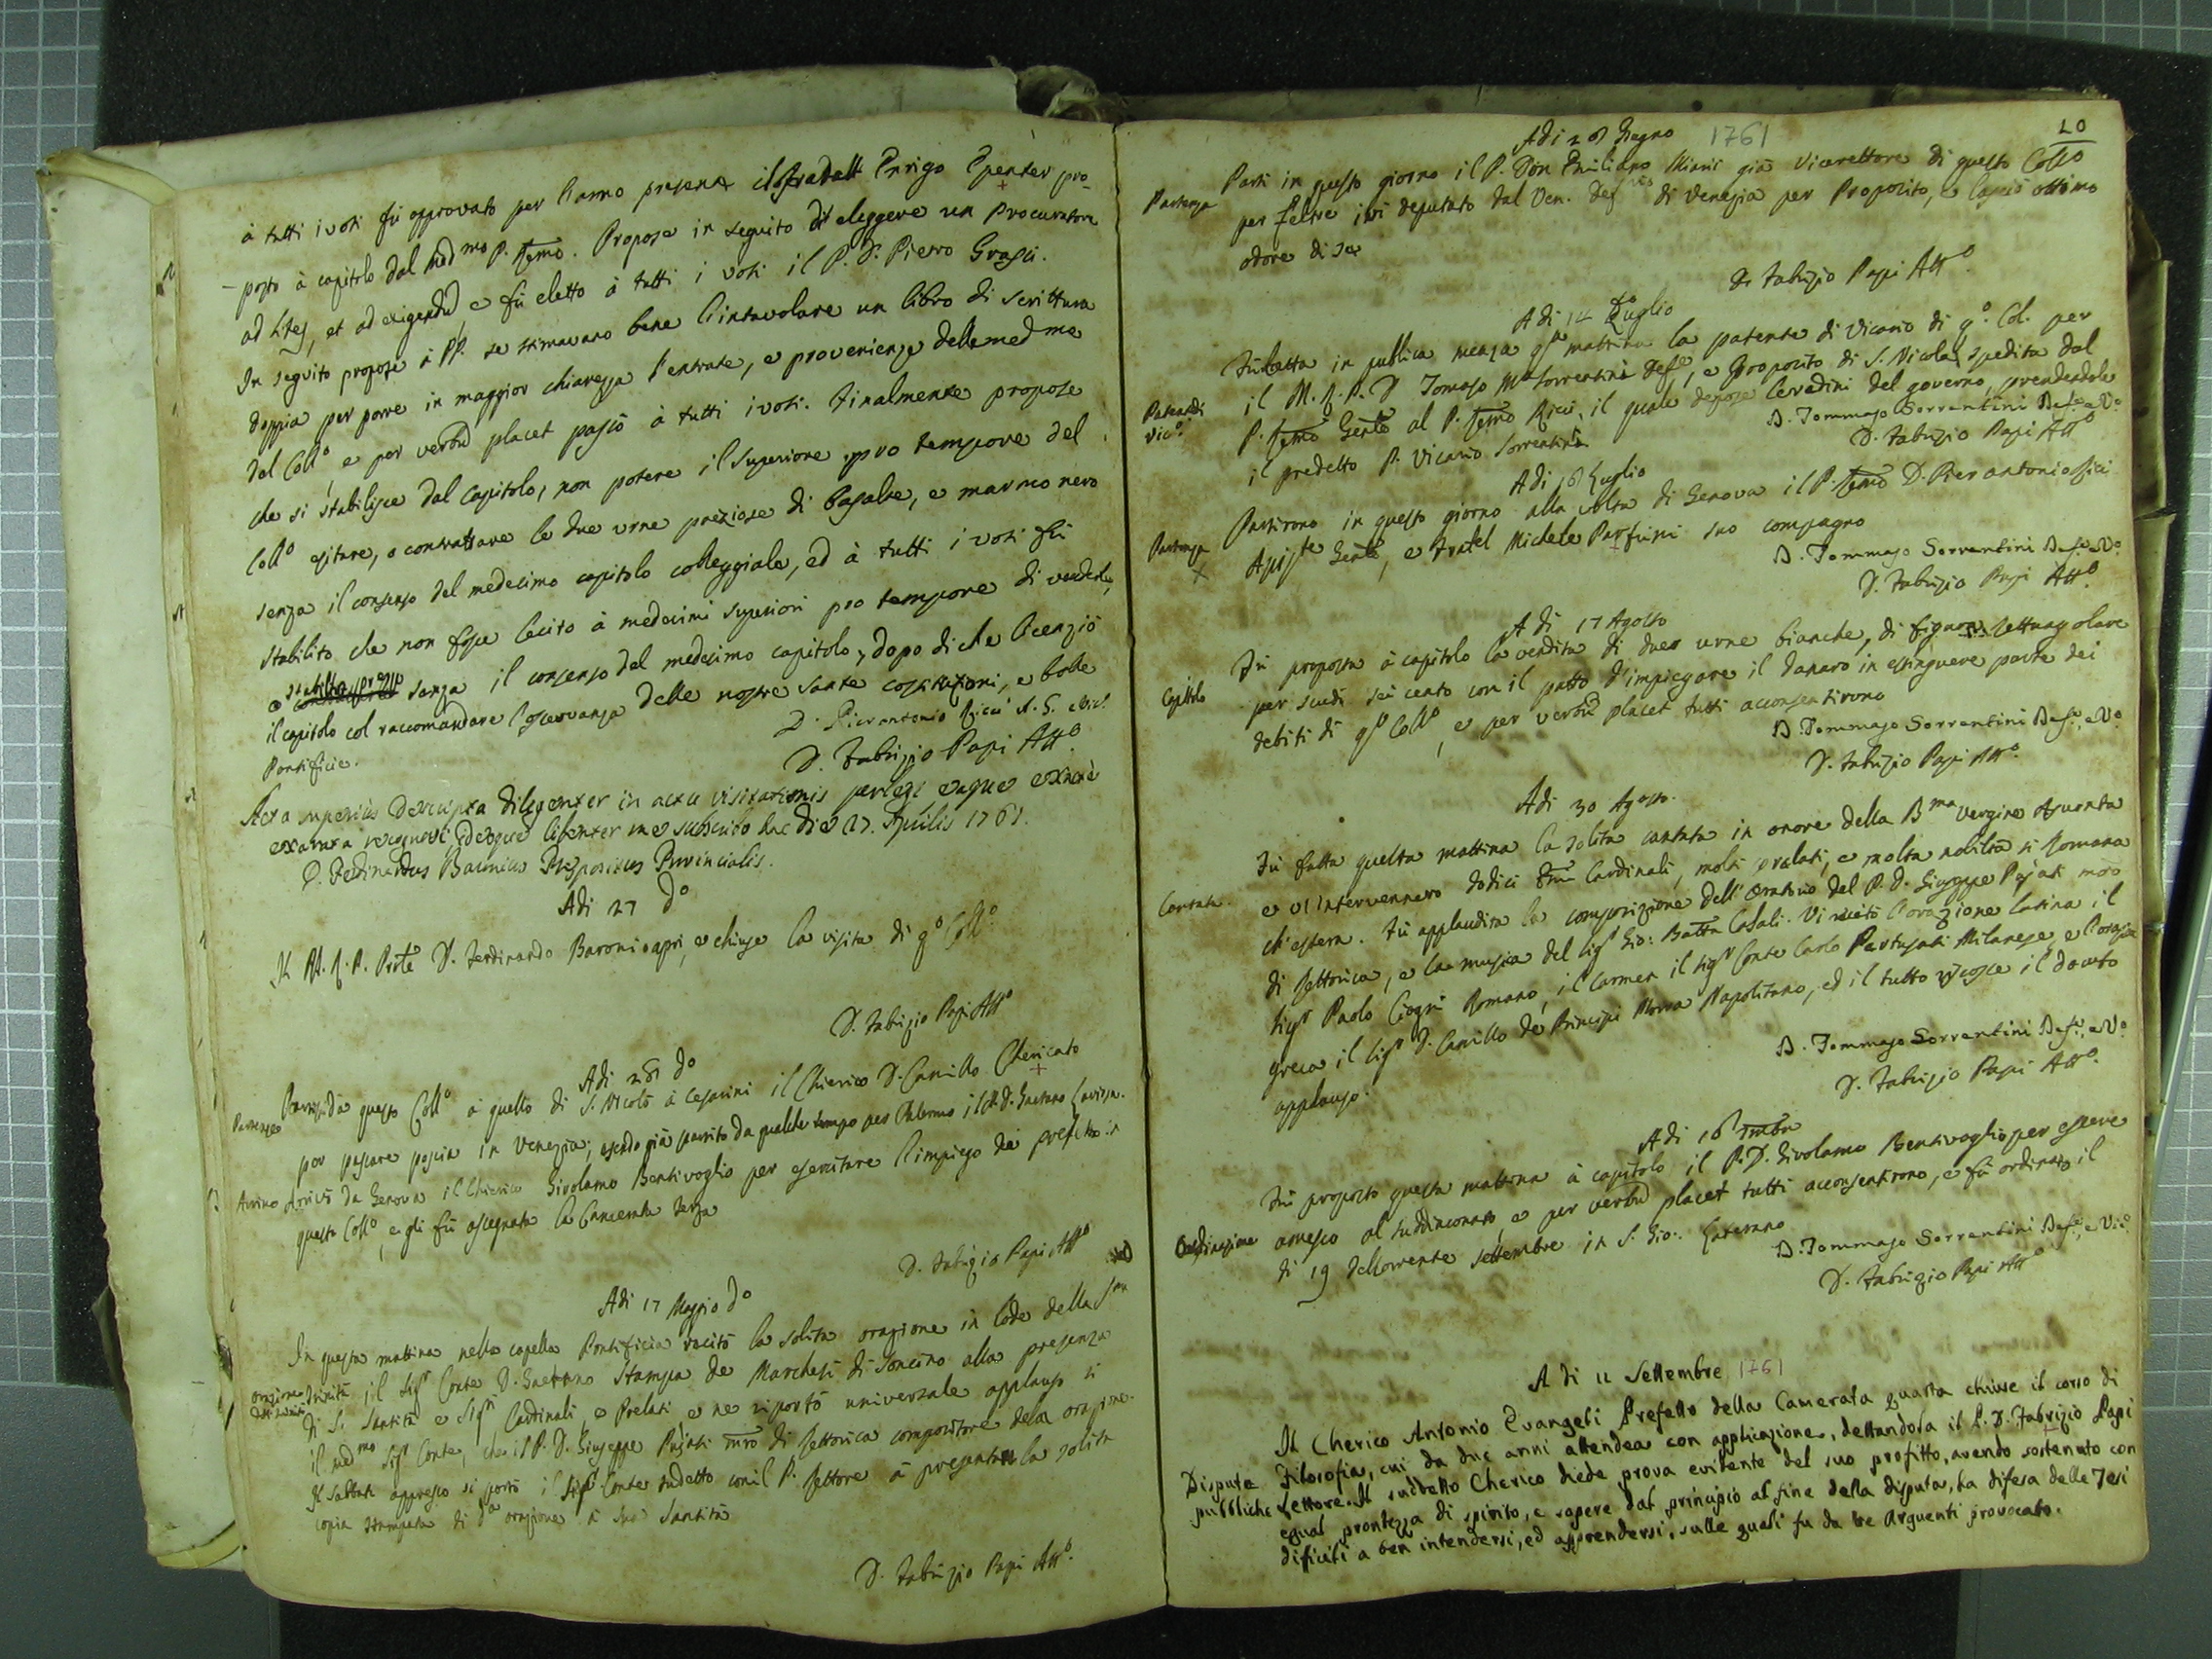 à tutti i voti fù approvato per l'anno presente il fradell Enrigo Spenter pro-
-posto à capitolo dal med.mo P. Rmo. Propose in seguito di eleggere un Procuratore
ad lites, et ad exigendū, e fù eletto à tutti i voti il P. D. Pietro Grassi.
In seguito propose à PP. se stimavano bene l'intavolare un libro di scrittura
doppia per porre in maggior chiarezza l'entrate, e provenienze delle med.me
del Coll.o, e per verbū placet passò à tutti i voti. Finalmente propose
che si stabilisce dal Capitolo, non potere il Superiore pro tempore del
Coll.o esitare, o contrattare le due urne preziose di basalte, e marmo nero
senza il consenso del medesimo capitolo collegiale, ed à tutti i voti fù
stabilito che non fosse lecito à medesimi superiori pro tempore di venderle,
o senza il consenso del medesimo capitolo, dopo di che licenziò
il capitolo col raccomandare l'osservanza delle nostre sante costituzioni, e bolle
Pontificie.
D. Pierantonio Ricci
D. Fabrizio Papi Att.o
Acta superius descripta diligenter in actu visitationis perlegi eaque exacte
exarata recognovi, ideoque libenter me subscribo hac die 27. Aprilis 1761.
D. Ferdinandus Baronius Prepositus Provincialis.
Adi 27 d.o
Il M. R. P. Prõle D. Ferdinando Baroni aprì, e chiuse la visita di q.o Coll.o
D. Fabrizio Papi Att.o
Adi 28 d.o
Partenza
Partì da questo Coll.o à quello di S. Nicolò à Cesarini il Chierico D. Camillo Chericato
per passare poscia in Venezia; essendo già partito da qualche tempo per Palermo il P. D. Gaetano
Arrivo
Arrivò da Genova il Chierico Girolamo Bentivoglio per esercitare l'impiego di prefetto in
questo Coll.o, e gli fù assegnata la Camerata terza
D. Fabrizio Papi Att.o
Adi 17 Maggio d.o
In questa mattina nella capella Pontificia recitò la solita orazione in lode della S.ma
orazione
Trinità il Sig.r Conte D. Gaetano Stampa de Marchesi di Soncino alla presenza
di S. Santità e Sig.ri Cardinali, e Prelati, e ne riportò universale applauso sì
il med.mo Sig.r Conte, che il P. D. Giuseppe Pujati mrõ di Rettorica compositore della orazione.
Il sabbato appresso si portò il Sig.r Conte sudetto con il P. Rettore à presentare la solita
copia stampata di d.a orazione à Sua Santità
D. Fabrizio Papi Att.o
20
Adi 28 Giugno 1761
Partenza
Partì in questo giorno il P. Don Emiliano Miani già Vicerettore di questo Coll.o
per Feltre ivi deputato dal Ven. Def.rio di Venezia per Proposito, e lasciò ottimo
odore di se
D. Fabrizio Papi Att.o
Adi 14 Luglio
Patente di
Vic.o
Fù letta in publica mensa q.sta mattina la patente di Vicario di q.o Col. per
il M. R. P. D. Tomaso M.a Sorrentini Def.e, e Proposito di S. Nicola, spedita dal
P. Rmo Gen̄le al P. Rmo Ricci, il quale depose le redini del governo, prendendole
il predetto P. Vicario Sorrentini
D. Tommaso Sorrentini Def.e e V.o
D. Fabrizio Papi Att.o
Adi 16 Luglio
Partenza
Partirono in questo giorno alla volta di Genova il P. Rmo D. Pierantonio Ricci
Assis.te Gen̄le, e Fratel Michele Parfumi suo compagno
D. Tommaso Sorrentini Def.e e V.o
D. Fabrizio Papi Att.o
Adi 17 Agosto
Capitolo
Fù proposta à capitolo la vendita di due urne bianche, di figura Rettangolare
per scudi sei cento con il patto d'impiegare il danaro in estinguere parte dei
debiti di q.o Coll.o, e per verbū placet tutti acconsentirono
D. Tommaso Sorrentini Def.e e V.o
D. Fabrizio Papi Att.o
Adi 30 Agosto.
Cantata.
Fù fatta questa mattina la solita cantata in onore della B.ma Vergine Assunta
e vi intervennero dodici Em̄i Cardinali, molti prelati, e molta nobiltà sì Romana
ch'estera. Fù applaudita la composizione dell'Oratorio del P. D. Giuseppe Pujati mrõ
di Rettorica, e la musica del Sig.r Gio: Batt̄a Casali. Vi recitò l'orazione latina il
Sig.r Paolo Ciogni Romano, il Carmen il Sig.r Conte Carlo Pertusati Milanese, e l'orazione
greca il Sig.r D. Camillo de Principi Morra Napolitano, ed il tutto riscosse il dovuto
applauso.
D. Tommaso Sorrentini Def.e e V.o
D. Fabrizio Papi Att.o
Adi 16 7mbre
Ordinazione
Fù proposto questa mattina à capitolo il P. D. Girolamo Bentivoglio per essere
amesso al suddiaconato, e per verbū placet tutti acconsentirono, e fù ordinato il
dì 19 del corrente settembre in S. Gio: Laterano
D. Tommaso Sorrentini Def.e e Vic.o
D. Fabrizio Papi Att.o
A di 11 Settembre 1761
Dispute
pubbliche
Il Cherico Antonio Evangeli Prefetto della Camerata quarta chiuse il corso di
Filosofia, cui da due anni attendea con applicazione, dettandola il P. D. Fabrizio Papi
Lettore. Il suddetto Cherico diede prova evidente del suo profitto, avendo sostenuto con
egual prontezza di spirito, e sapere dal principio al fine della disputa, la difesa delle Tesi
dificili a ben intendersi, ed apprendersi, sulle quali fu da tre Arguenti provocato.